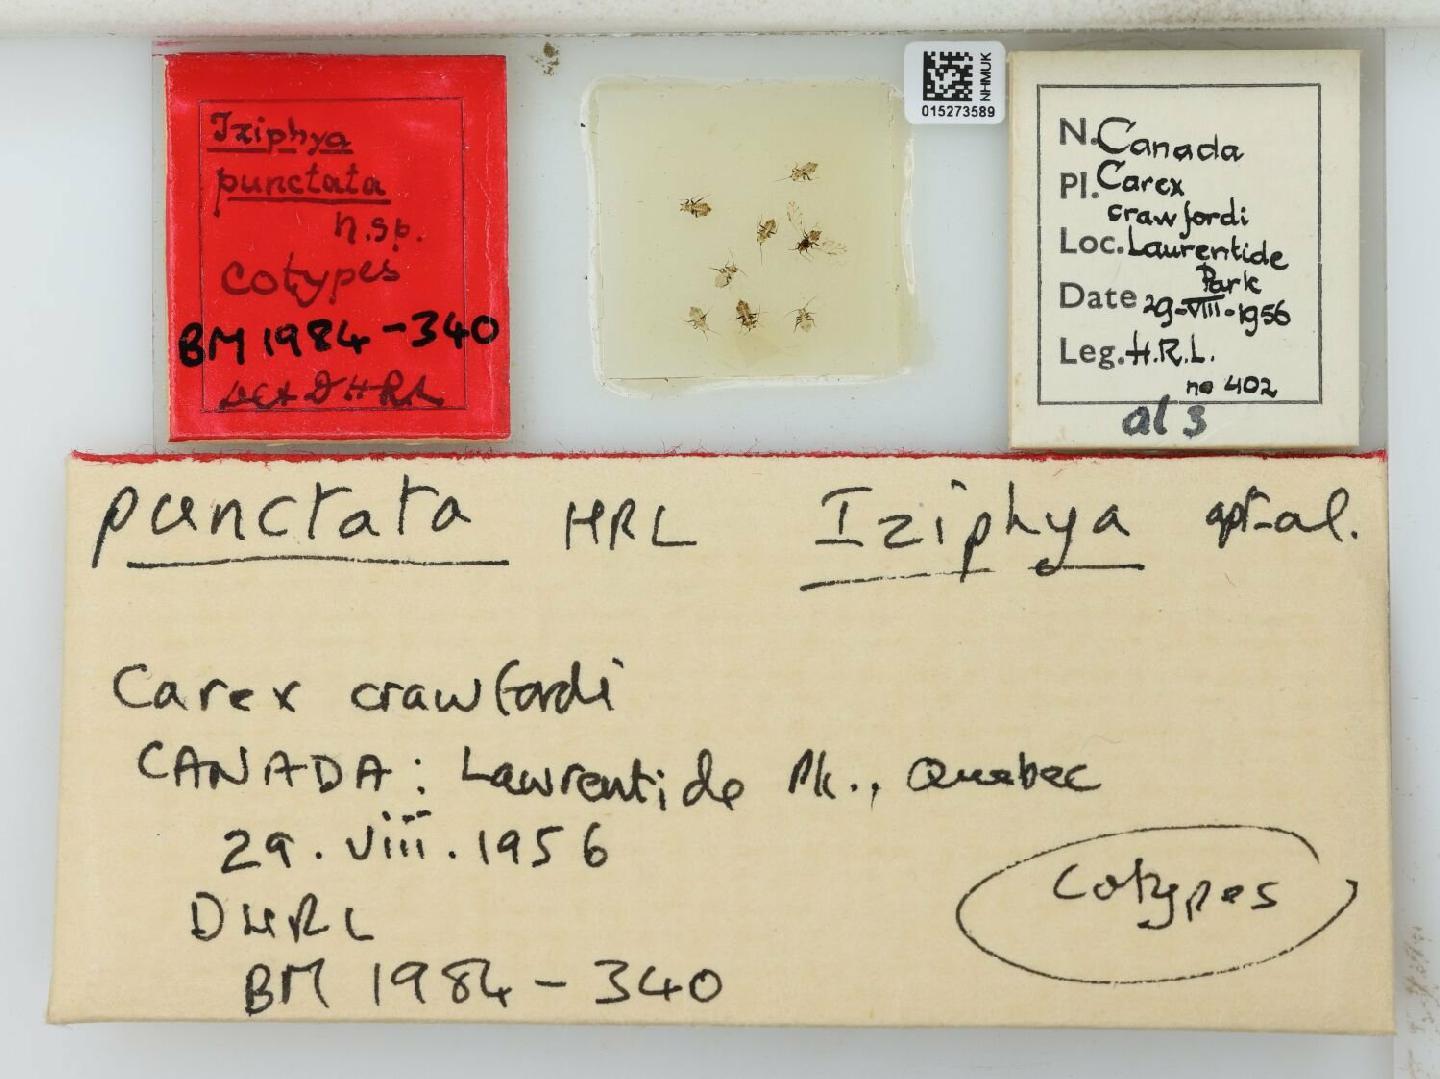 Iziphya
punctata
n.sp.
cotypes
BM 1984-340
det D H R L
NHMUK
015273589
N. Canada
Pl. Carex
crawfordi
Loc. Laurentide
Park
Date 29-VIII-1956
Leg. H.R.L.
no 402
al 3
punctata HRL Iziphya apt-al.
Carex crawfordi
CANADA: Lawrentide Pk., Quebec
29.viii.1956
DHRL
BM 1984-340
cotypes